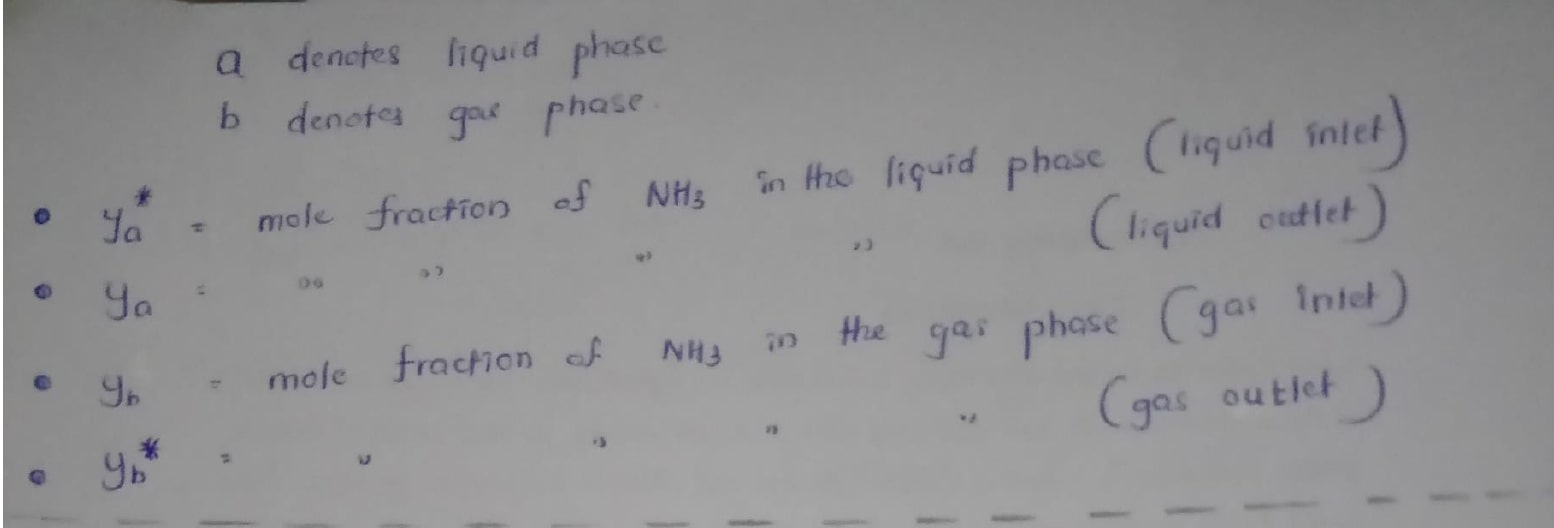 a denotes liquid phase
b denotes gas phase.
• ya* = mole fraction of NH3 in the liquid phase (liquid inlet)
• ya = " " " " (liquid outlet)
• yb = mole fraction of NH3 in the gas phase (gas inlet)
• yb* = " " " " (gas outlet)